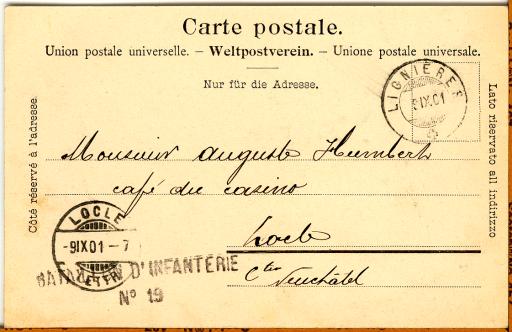 Carte postale.
Union postale universelle. – Weltpostverein. – Unione postale universale.
Nur für die Adresse.
Côté réservé à l'adresse.
Lato riservato all indirizzo
LIGNIÈRES
9IX.01
Monsieur Auguste Humbert
café du casino
Locle
Cton Neuchâtel
LOCLE
-9IX01-7
LETTR
BATAILLON D'INFANTERIE
No 19